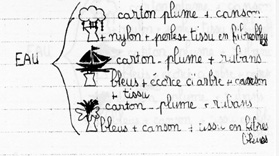 carton plume + canson
+ nylon + perles + tissu en fibres bleu
EAU
carton - plume + rubans
bleus + écorce d'arbre + canson
+ tissu
carton - plume + rubans
bleus + canson + tissu en fibres
bleues